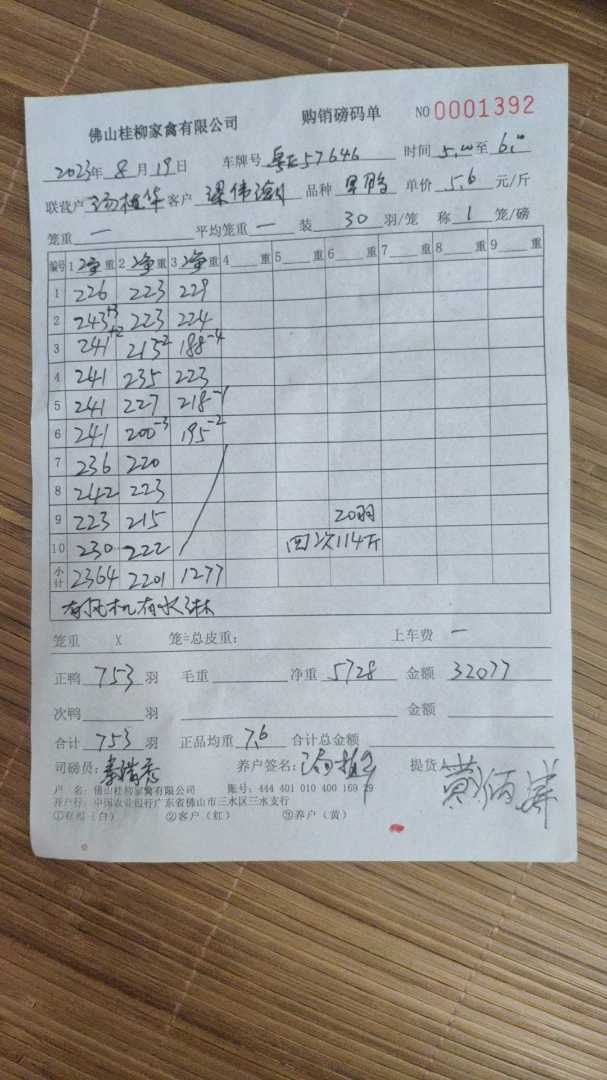 佛山桂柳家禽有限公司 购销磅码单 NO 0001392
2023年 8 月 19 日 车牌号 粤E57646 时间 5:00 至 6:00
联营户 汤植华 客户 梁伟 品种 单价 5.6 元/斤
笼重 一 平均笼重 一 装 30 羽/笼 称 1 笼/磅
编号 1 净 重 2 净 重 3 净 重 4 重 5 重 6 重 7 重 8 重 9 重
1 226 223 229
2 243+3 223 224
3 241+2 213-2 188-4
4 241 235 223
5 241 227 218-1
6 241 200-3 195-2
7 236 220
8 242 223
9 223 215 20羽
10 230 222 四次114斤
小计 2364 2201 1277
有风机有水淋
笼重 X 笼=总皮重: 上车费 一
正鸭 753 羽 毛重 净重 5728 金额 32077
次鸭 羽 金额
合计 753 羽 正品均重 7.6 合计总金额
司磅员: 养户签名: 汤植华 提货人 黄
户 名: 佛山桂柳家禽有限公司 账号: 444 401 010 400 169 29
开户行: 中国农业银行广东省佛山市三水区三水支行
①存根(白) ②客户(红) ③养户(黄)